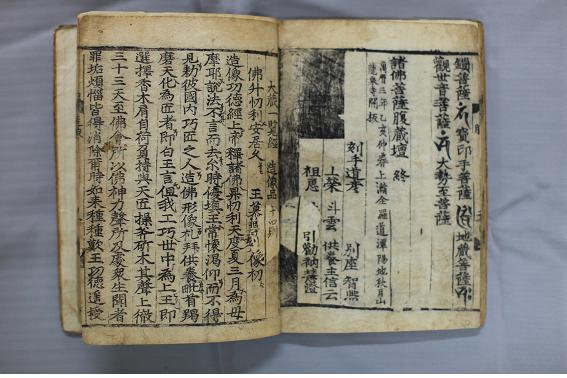 鎖菩薩 寶印手菩薩 地藏菩薩
觀世音菩薩 大勢至菩薩
諸佛菩薩腹藏壇 終
萬曆三年乙亥仲春上澣全羅道潭陽地秋月山
龍泉寺開板
刻手道孝 別座智熙
上䇿 斗雲 供養主信云
祖恩 引勸衲慧證
大藏一覽經 造像品 十四則
佛升忉利安居久 王募 刻像初
造像功德經上帝釋請佛昇忉利天度夏三月為母
摩耶說法不言而去于時優塡王常懷渴仰而不得
見勑彼國內巧匠之人造佛形像礼拜供養毗首羯
磨天化為匠者即白王言但我工巧世中為上王即
選擇香木肩自荷負持與天匠操斧斫木其聲上徹
三十三天至佛會所以佛神力聲所及處衆生聞者
罪垢煩惱皆得消除爾時如来種種歎王功德遂授